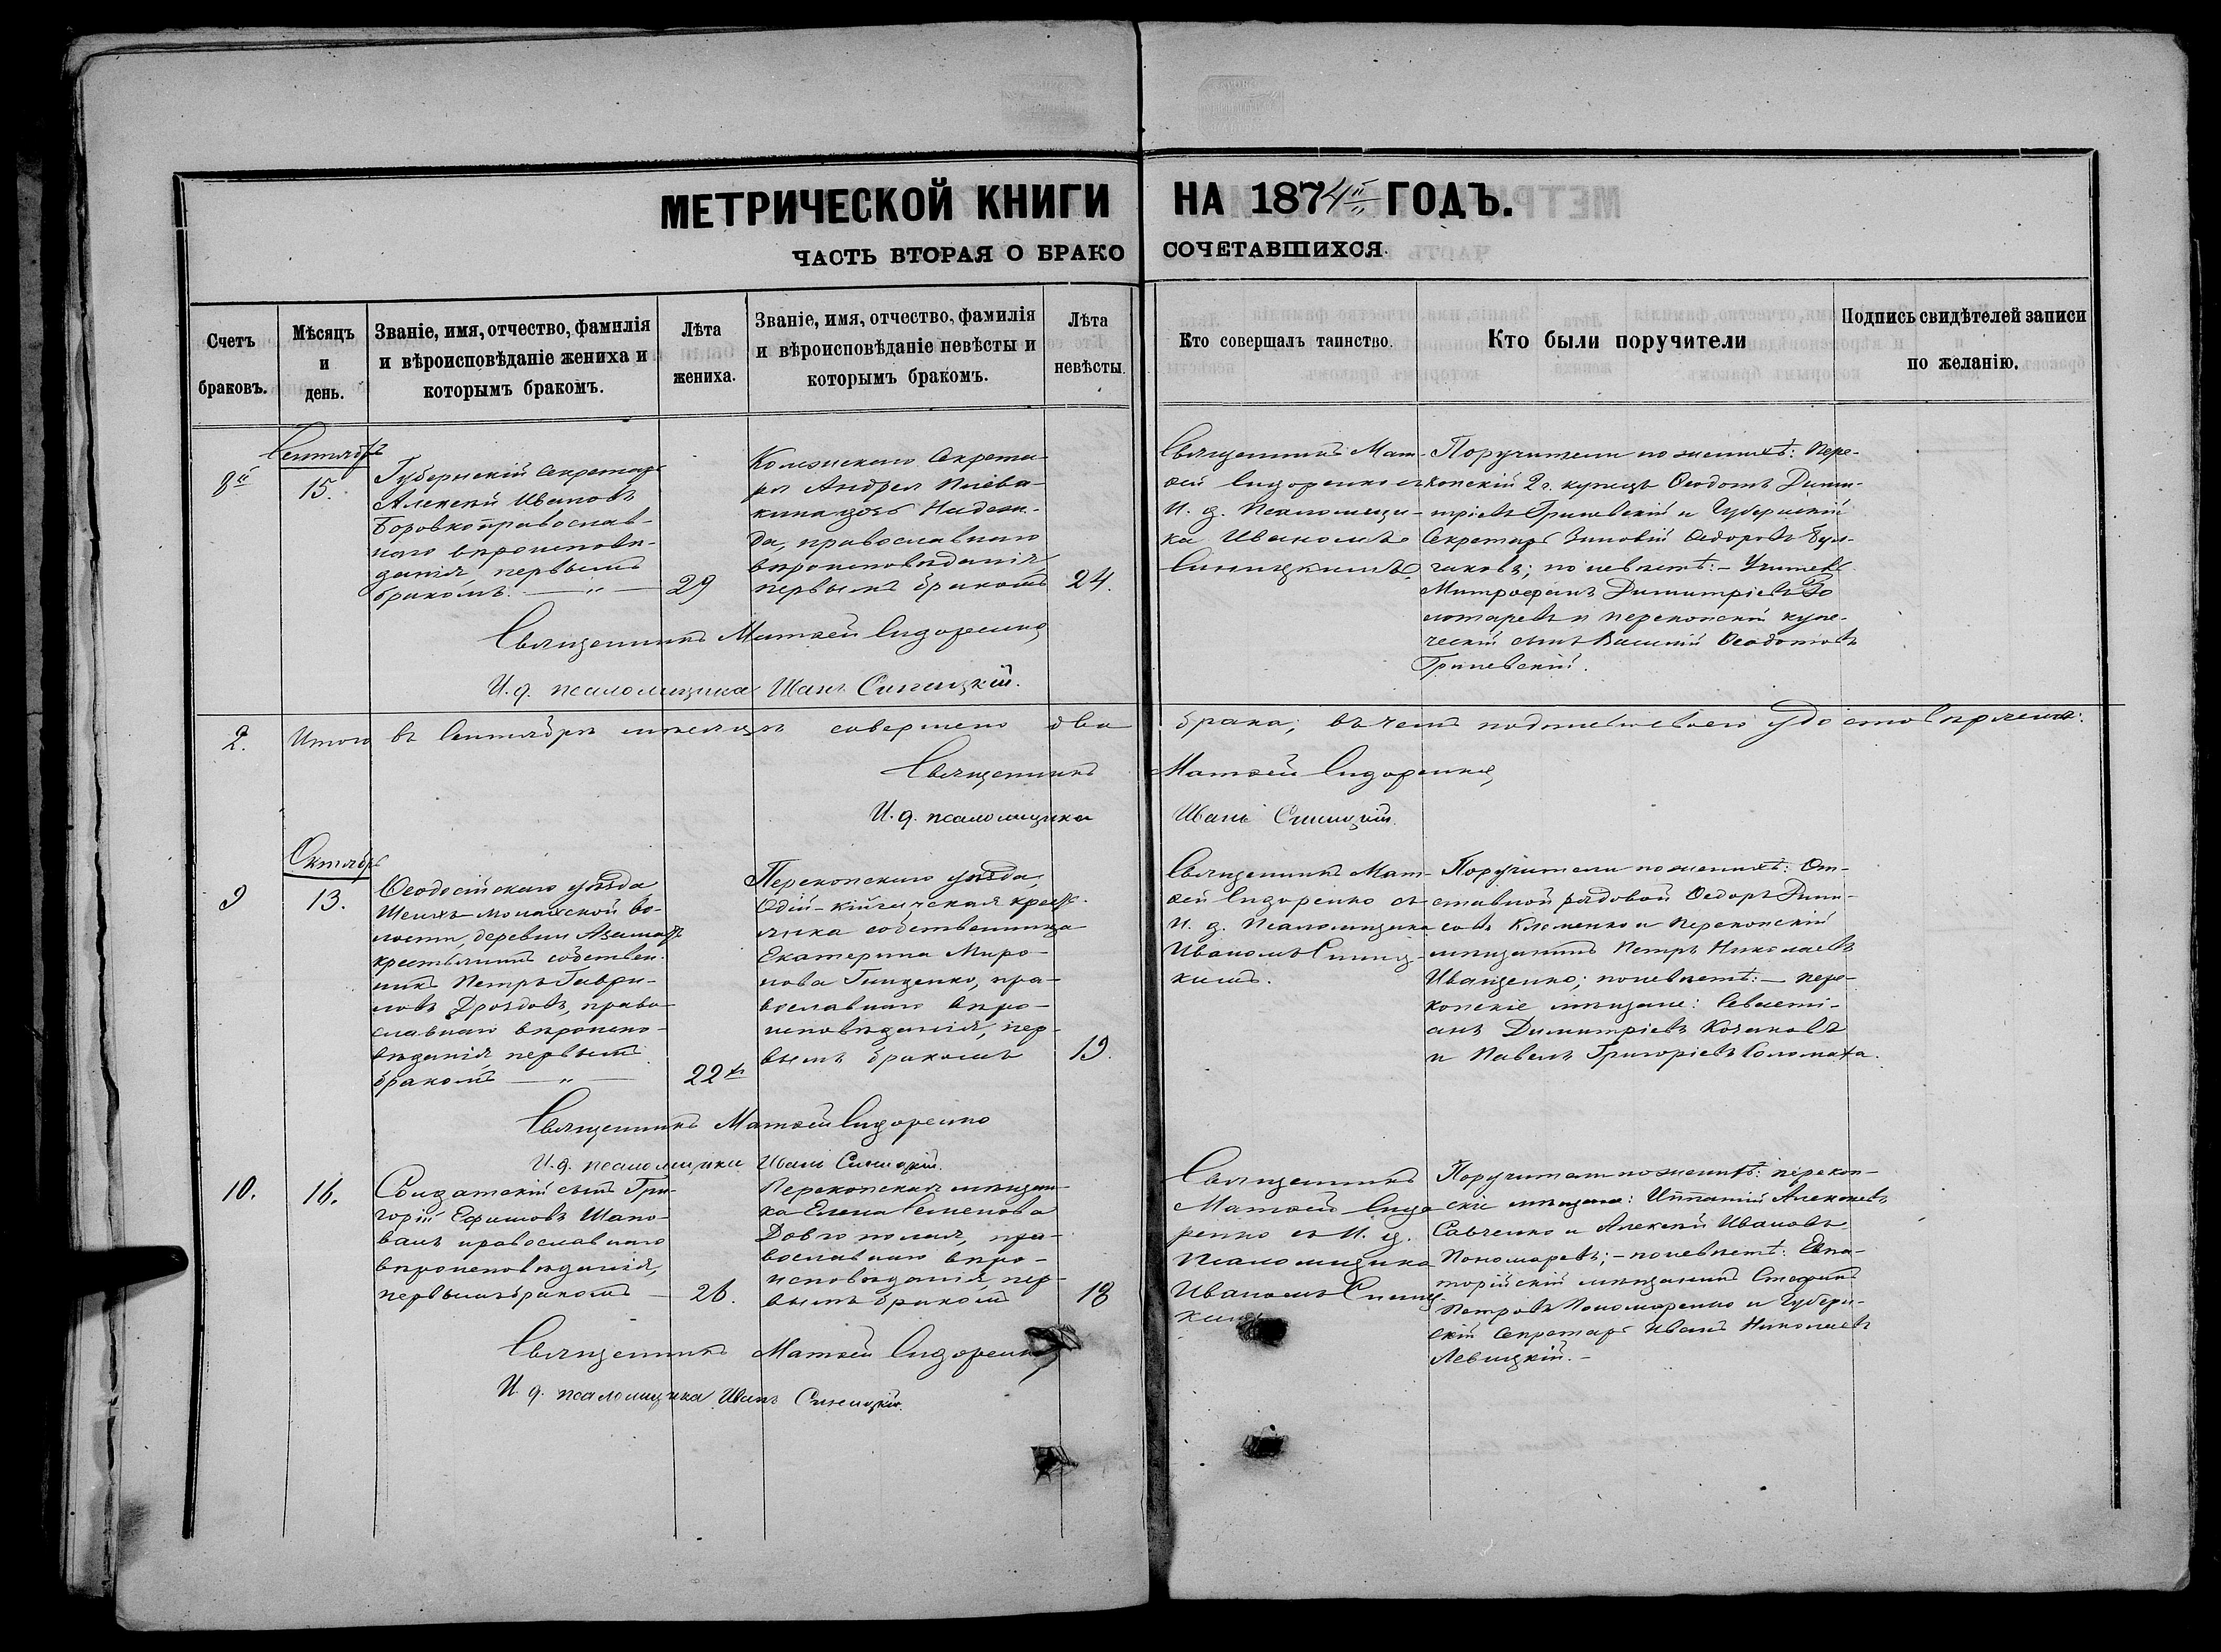 МЕТРИЧЕСКОЙ КНИГИ НА 1874й ГОДЪ.
ЧАСТЬ ВТОРАЯ О БРАКОСОЧЕТАВШИХСЯ.
Счетъ
браковъ.
Мѣсяцъ
и
день.
Званіе, имя, отчество, фамилія
и вѣроисповѣданіе жениха и
которымъ бракомъ.
Лѣта
жениха.
Званіе, имя, отчество, фамилія
и вѣроисповѣданіе невѣсты и
которымъ бракомъ.
Лѣта
невѣсты.
Кто совершалъ таинство.
Кто были поручители
Подпись свидѣтелей записи
по желанію.
8й
Сентябрь
15.
Губернскій Секретарь
Алексѣй Ивановъ
Боровко православ-
наго вѣроисповѣ-
данія, первымъ
бракомъ. — " —
29
Коллежскаго Секрета-
ря Андрея
дочь Надеж-
да, православнаго
вѣроисповѣданія,
первымъ бракомъ
24.
Священникъ Мат-
ѳей Сидоренко съ
И. д. Псаломщи-
ка Иваномъ
Синицкимъ.
Поручители по женихѣ: Пере-
копскій 2 г. купецъ Ѳеодотъ Дими-
тріевъ Гриневскій и Губернскій
Секретарь Зиновій Ѳедоровъ
по невѣстѣ: — Учитель
Митрофанъ Димитріевъ Зо
лотаревъ и перекопскій купе-
ческій сынъ Василій Ѳеодотовъ
Гриневскій.
Священникъ Матѳей Сидоренко
И. д. псаломщика Иванъ Синицкій.
2. Итого въ Сентябрѣ мѣсяцѣ совершено два брака; въ чемъ подписью своею удостовѣряемъ:
Священникъ Матѳей Сидоренко,
И. д. псаломщика Иванъ Синицкій.
9
Октябрь
13.
Ѳеодосійскаго уѣзда
волости, деревни
крестьянинъ собствен-
никъ Петръ Гаври-
ловъ Дроздовъ, право-
славнаго вѣроиспо-
вѣданія, первымъ
бракомъ — " —
22
Перекопскаго уѣзда,
крестья-
нка собственница
Екатерина Миро-
нова Гниденко, пра-
вославнаго вѣро-
исповѣданія, пер-
вымъ бракомъ
19.
Священникъ Мат-
ѳей Сидоренко съ
И. д. Псаломщика
Иваномъ Синиц-
кимъ.
Поручители по женихѣ: От-
ставной рядовой Ѳедоръ
Клеменко и Перекопскій
мѣщанинъ Петръ Николаевъ
Иващенко; по невѣстѣ: — Пере-
копскіе мѣщане: Севасті-
анъ Димитріевъ Козаковъ
и Павелъ Григоріевъ Соломаха.
Священникъ Матѳей Сидоренко
И. д. псаломщика Иванъ Синицкій.
10.
16.
Солдатскій сынъ Гри-
горій Ефимовъ Шапо-
валъ православнаго
вѣроисповѣданія,
первымъ бракомъ —
26.
Перекопская мѣщан-
ка Елена Семенова
Довгополая, пра-
вославнаго вѣро-
исповѣданія, пер-
вымъ бракомъ
18
Священникъ
Матѳей Сидо
ренко съ И. д.
Псаломщика
Иваномъ Синиц
кимъ
Поручители по женихѣ: перекоп-
скіе мѣщане: Ипатій Алексѣевъ
Савченко и Алексѣй Ивановъ
Пономаревъ; — по невѣстѣ: Евпа-
торійскій мѣщанинъ Стефанъ
Петровъ Пономаренко и Губерн-
скій Секретарь Иванъ Николаевъ
Левицкій. —
Священникъ Матѳей Сидоренко
И. д. псаломщика Иванъ Синицкій.